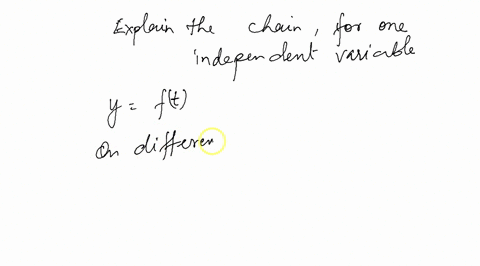 Explain the chain, for one
independent variable
y = f(t)
On differen